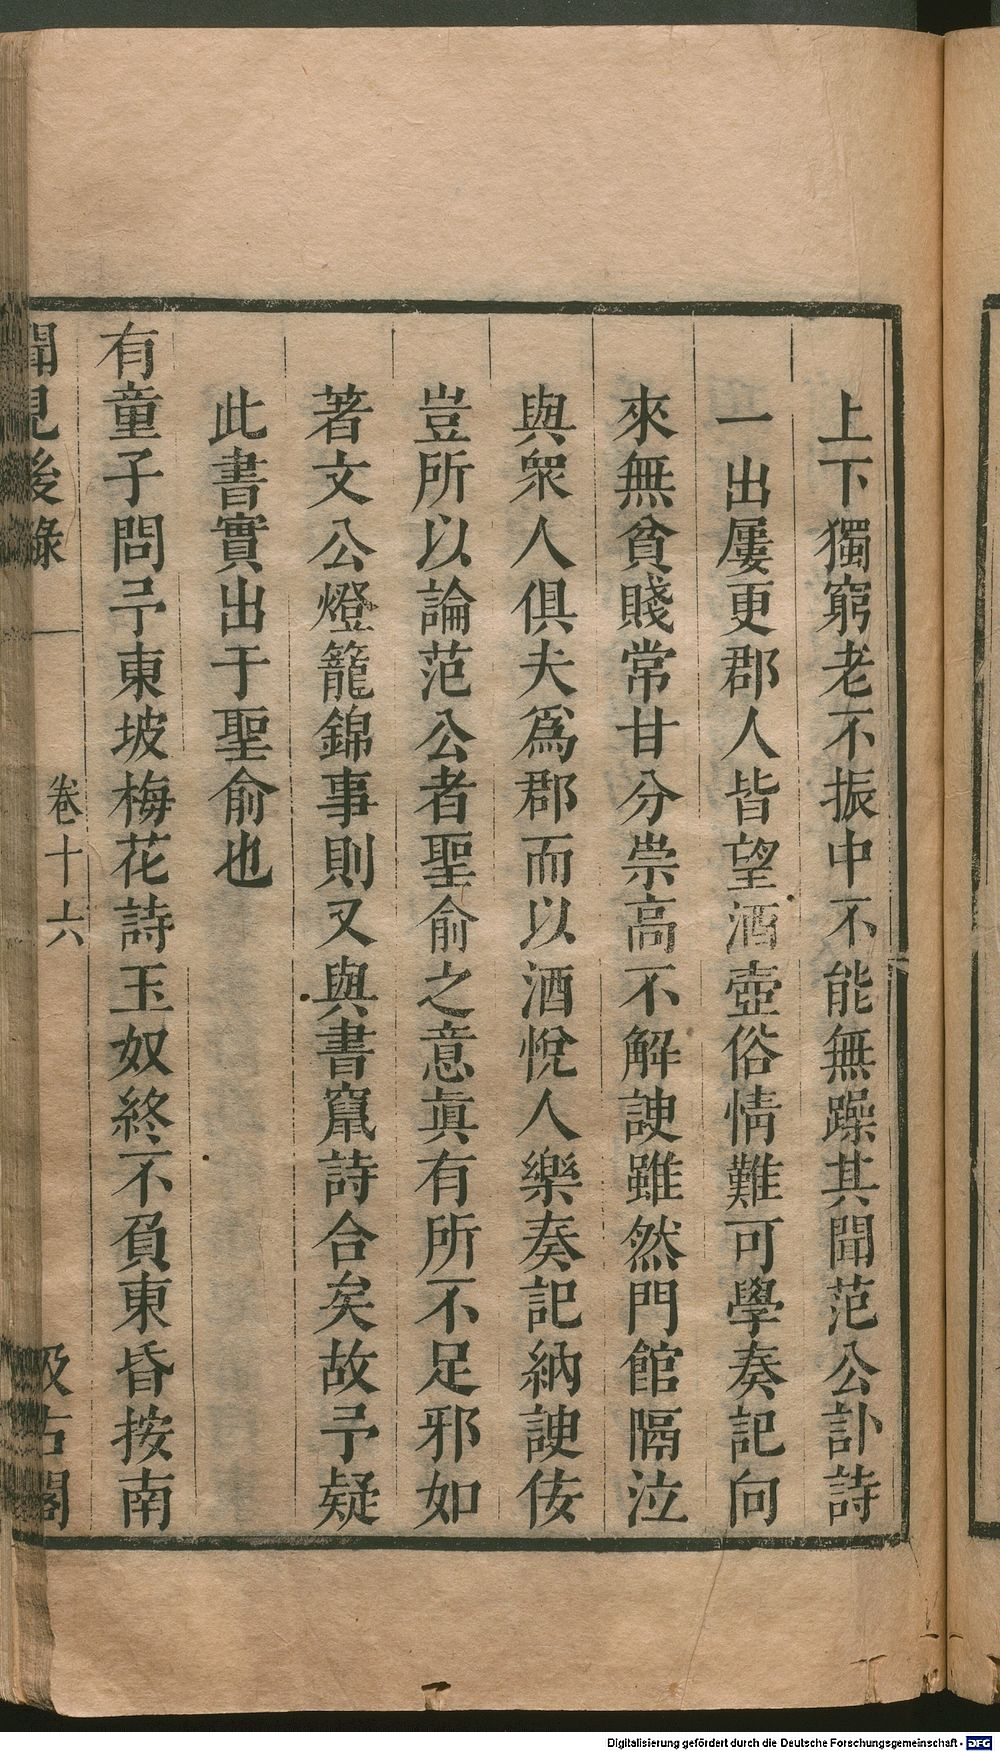 上下獨窮老不振中不能無躁其聞范公訃詩
一出屢更郡人皆望酒壺俗情難可學奏記向
來無貧賤常甘分崇高不解諛雖然門館隔泣
與衆人俱夫爲郡而以酒悅人樂奏記納諛佞
豈所以論范公者聖俞之意眞有所不足邪如
著文公燈籠錦事則又與書竄詩合矣故予疑
此書實出于聖俞也
有童子問予東坡梅花詩玉奴終不負東昏按南
聞見後錄 卷十六 汲古閣
Digitalisierung gefördert durch die Deutsche Forschungsgemeinschaft - DFG